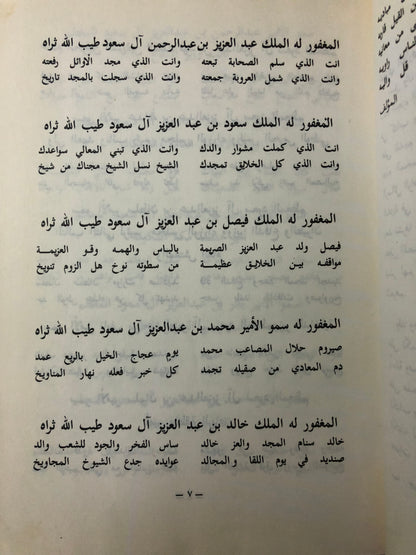 المغفور له الملك عبد العزيز بن عبدالرحمن آل سعود طيب الله ثراه
انت الذي سلم الصحابة تبعته وانت الذي مجد الأوائل رفعته
وانت الذي شمل العروبة جمعته وانت الذي سجلت بالمجد تاريخ
المغفور له الملك سعود بن عبد العزيز آل سعود طيب الله ثراه
انت الذي كملت مشوار والدك وانت الذي تبني المعالي سواعدك
وانت الذي كل الخلايق تمجدك الشيخ نسل الشيخ مجناك من شيخ
المغفور له الملك فيصل بن عبد العزيز آل سعود طيب الله ثراه
فيصل ولد عبد العزيز الصريمة بالباس والهمه وقو العزيمة
مواقفه بين الخلايق عظيمة من سطوته نوخ هل الزوم تنويخ
المغفور له سمو الأمير محمد بن عبدالعزيز آل سعود طيب الله ثراه
صيروم حلال المصاعب محمد يوم عجاج الخيل بالربع عمد
دم المعادي من صقيله تجمد كل خبر فعله نهار المناويخ
المغفور له الملك خالد بن عبد العزيز آل سعود طيب الله ثراه
خالد سنام المجد والعز خالد ساس الفخر والجود للشعب والد
صنديد في يوم اللقا والمجالد عوايده جدع الشيوخ المجاويخ
— ٧ —